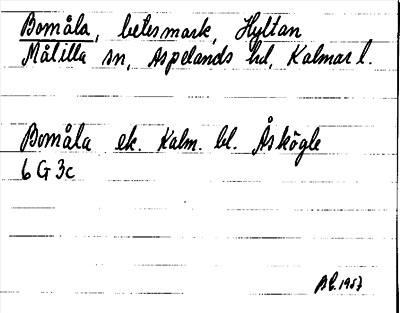 Bomåla, betesmark, Hyltan
Målilla sn, Aspelands hd, Kalmar l.
Bomåla ek. Kalm. bl. Åskögle
6 G 3c
1957